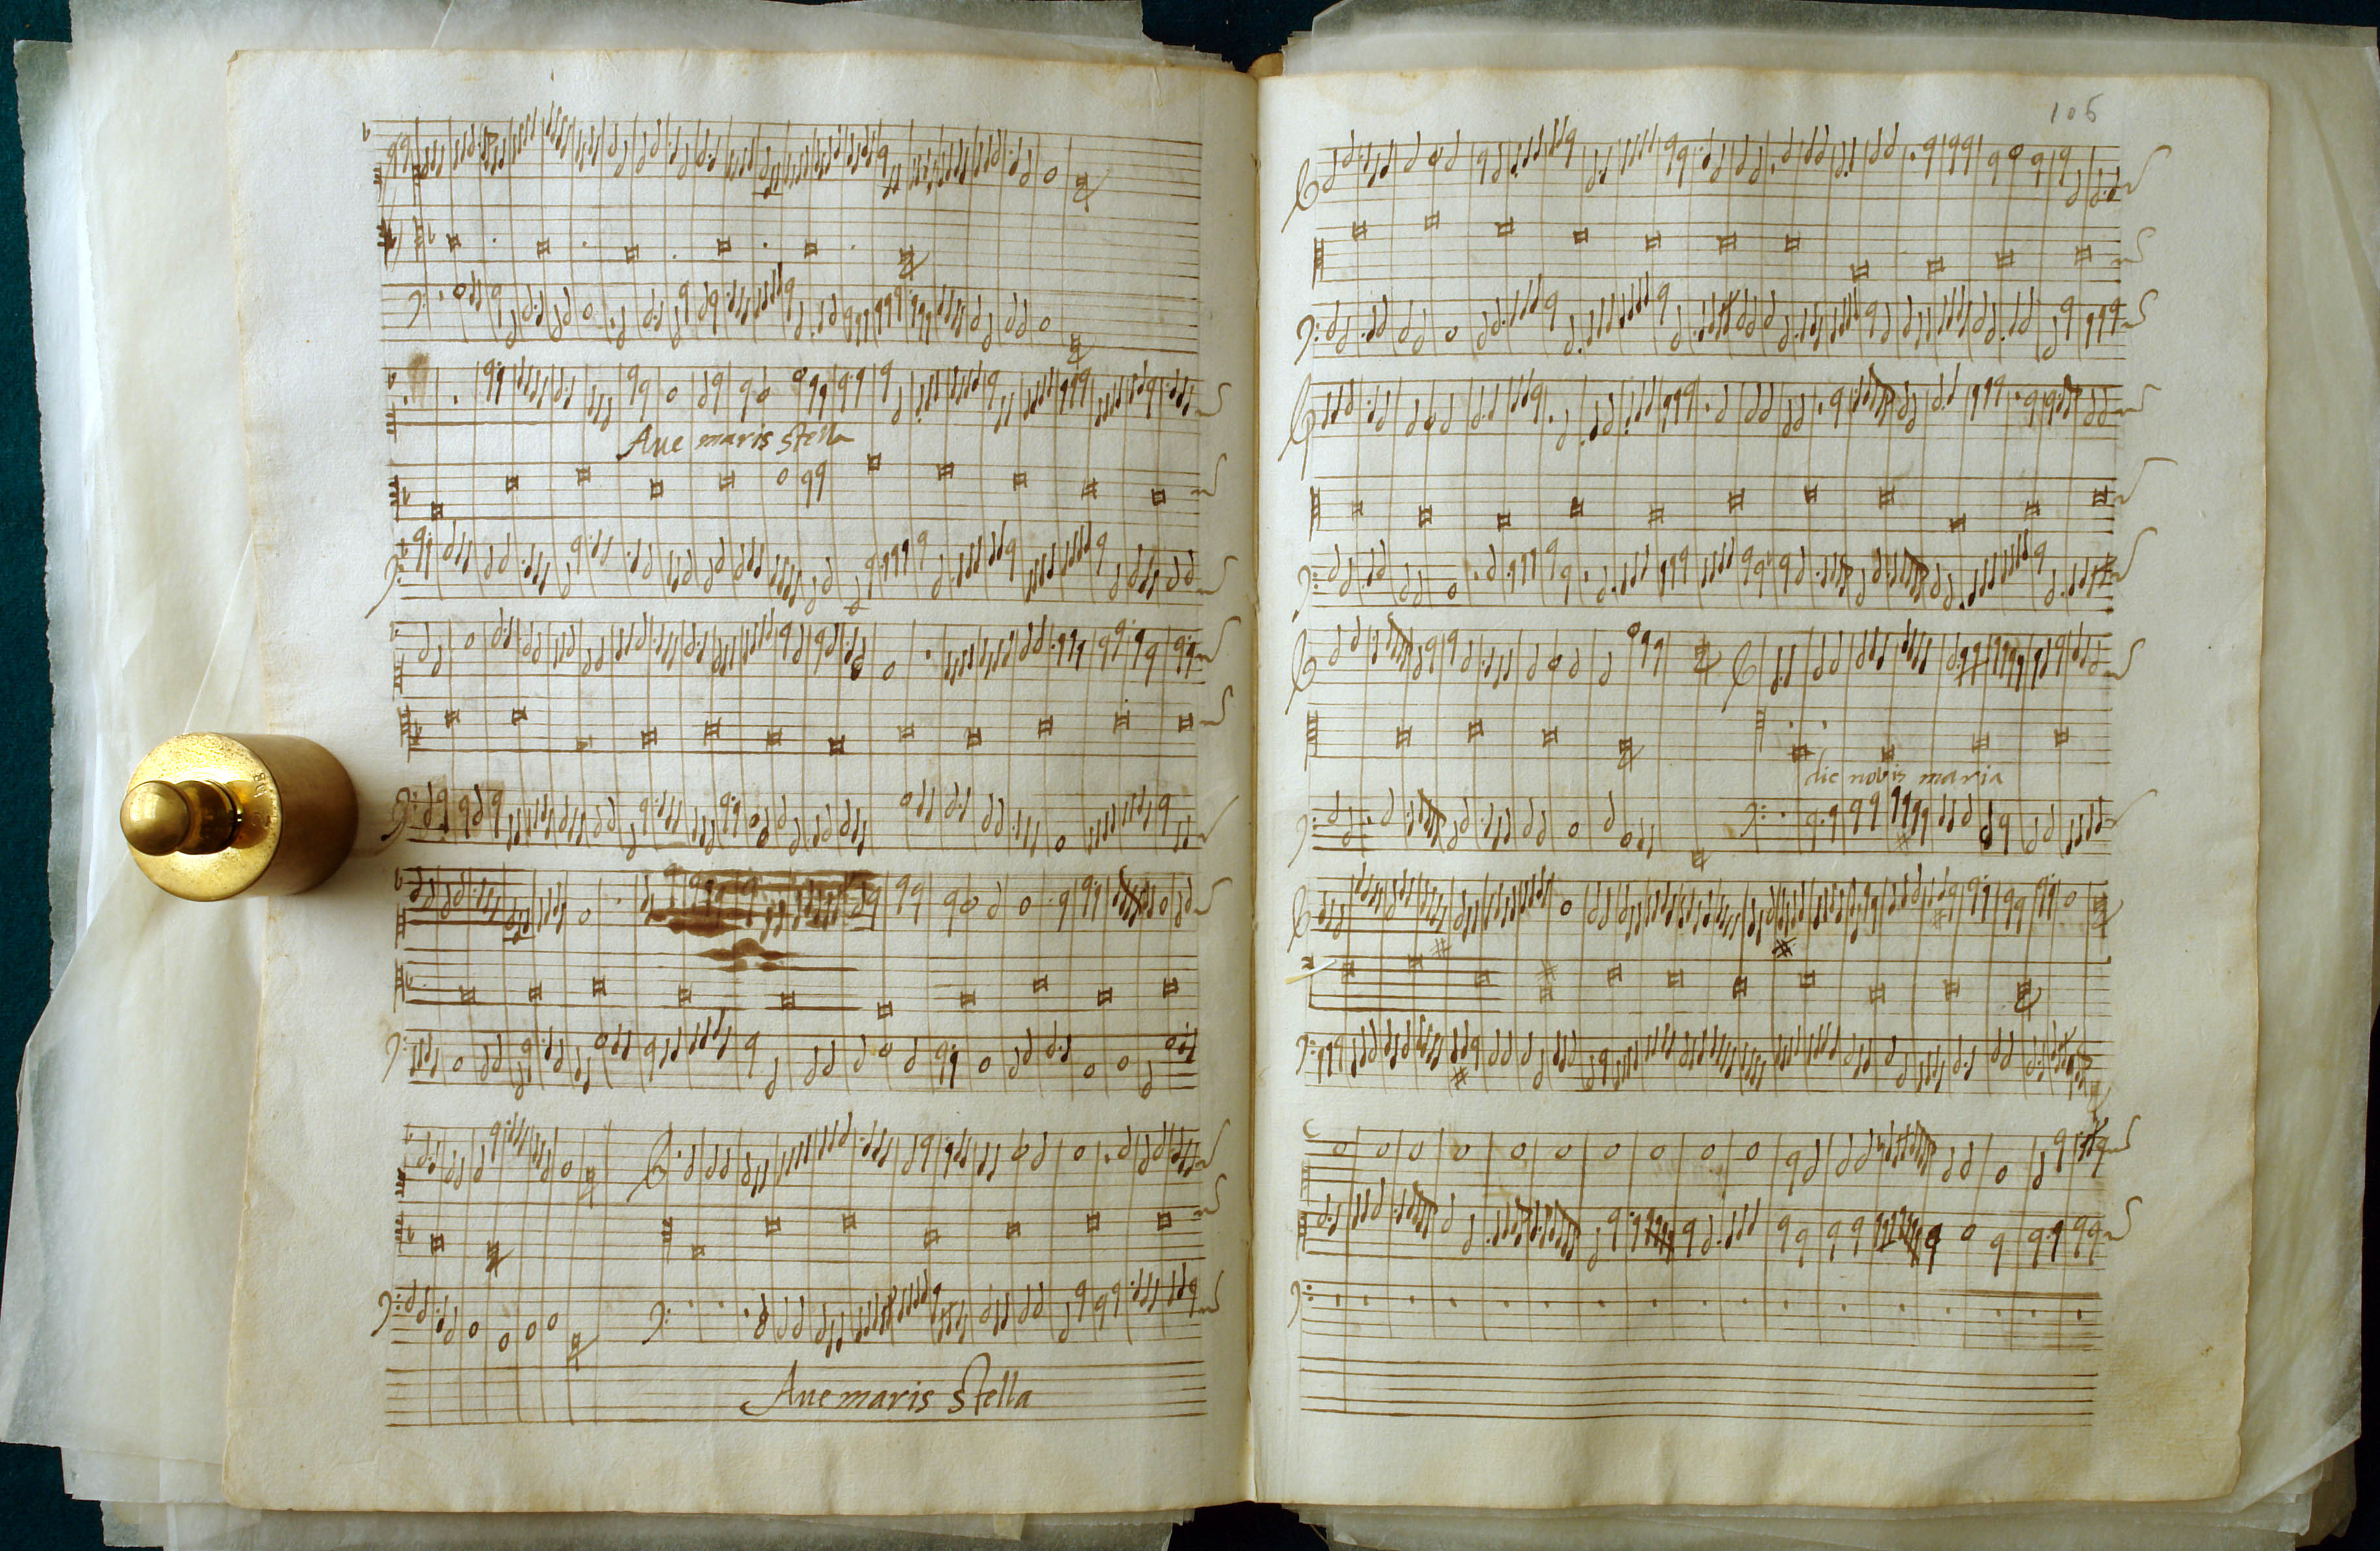 Aue maris stella
Aue maris stella
106
dic nobis maria